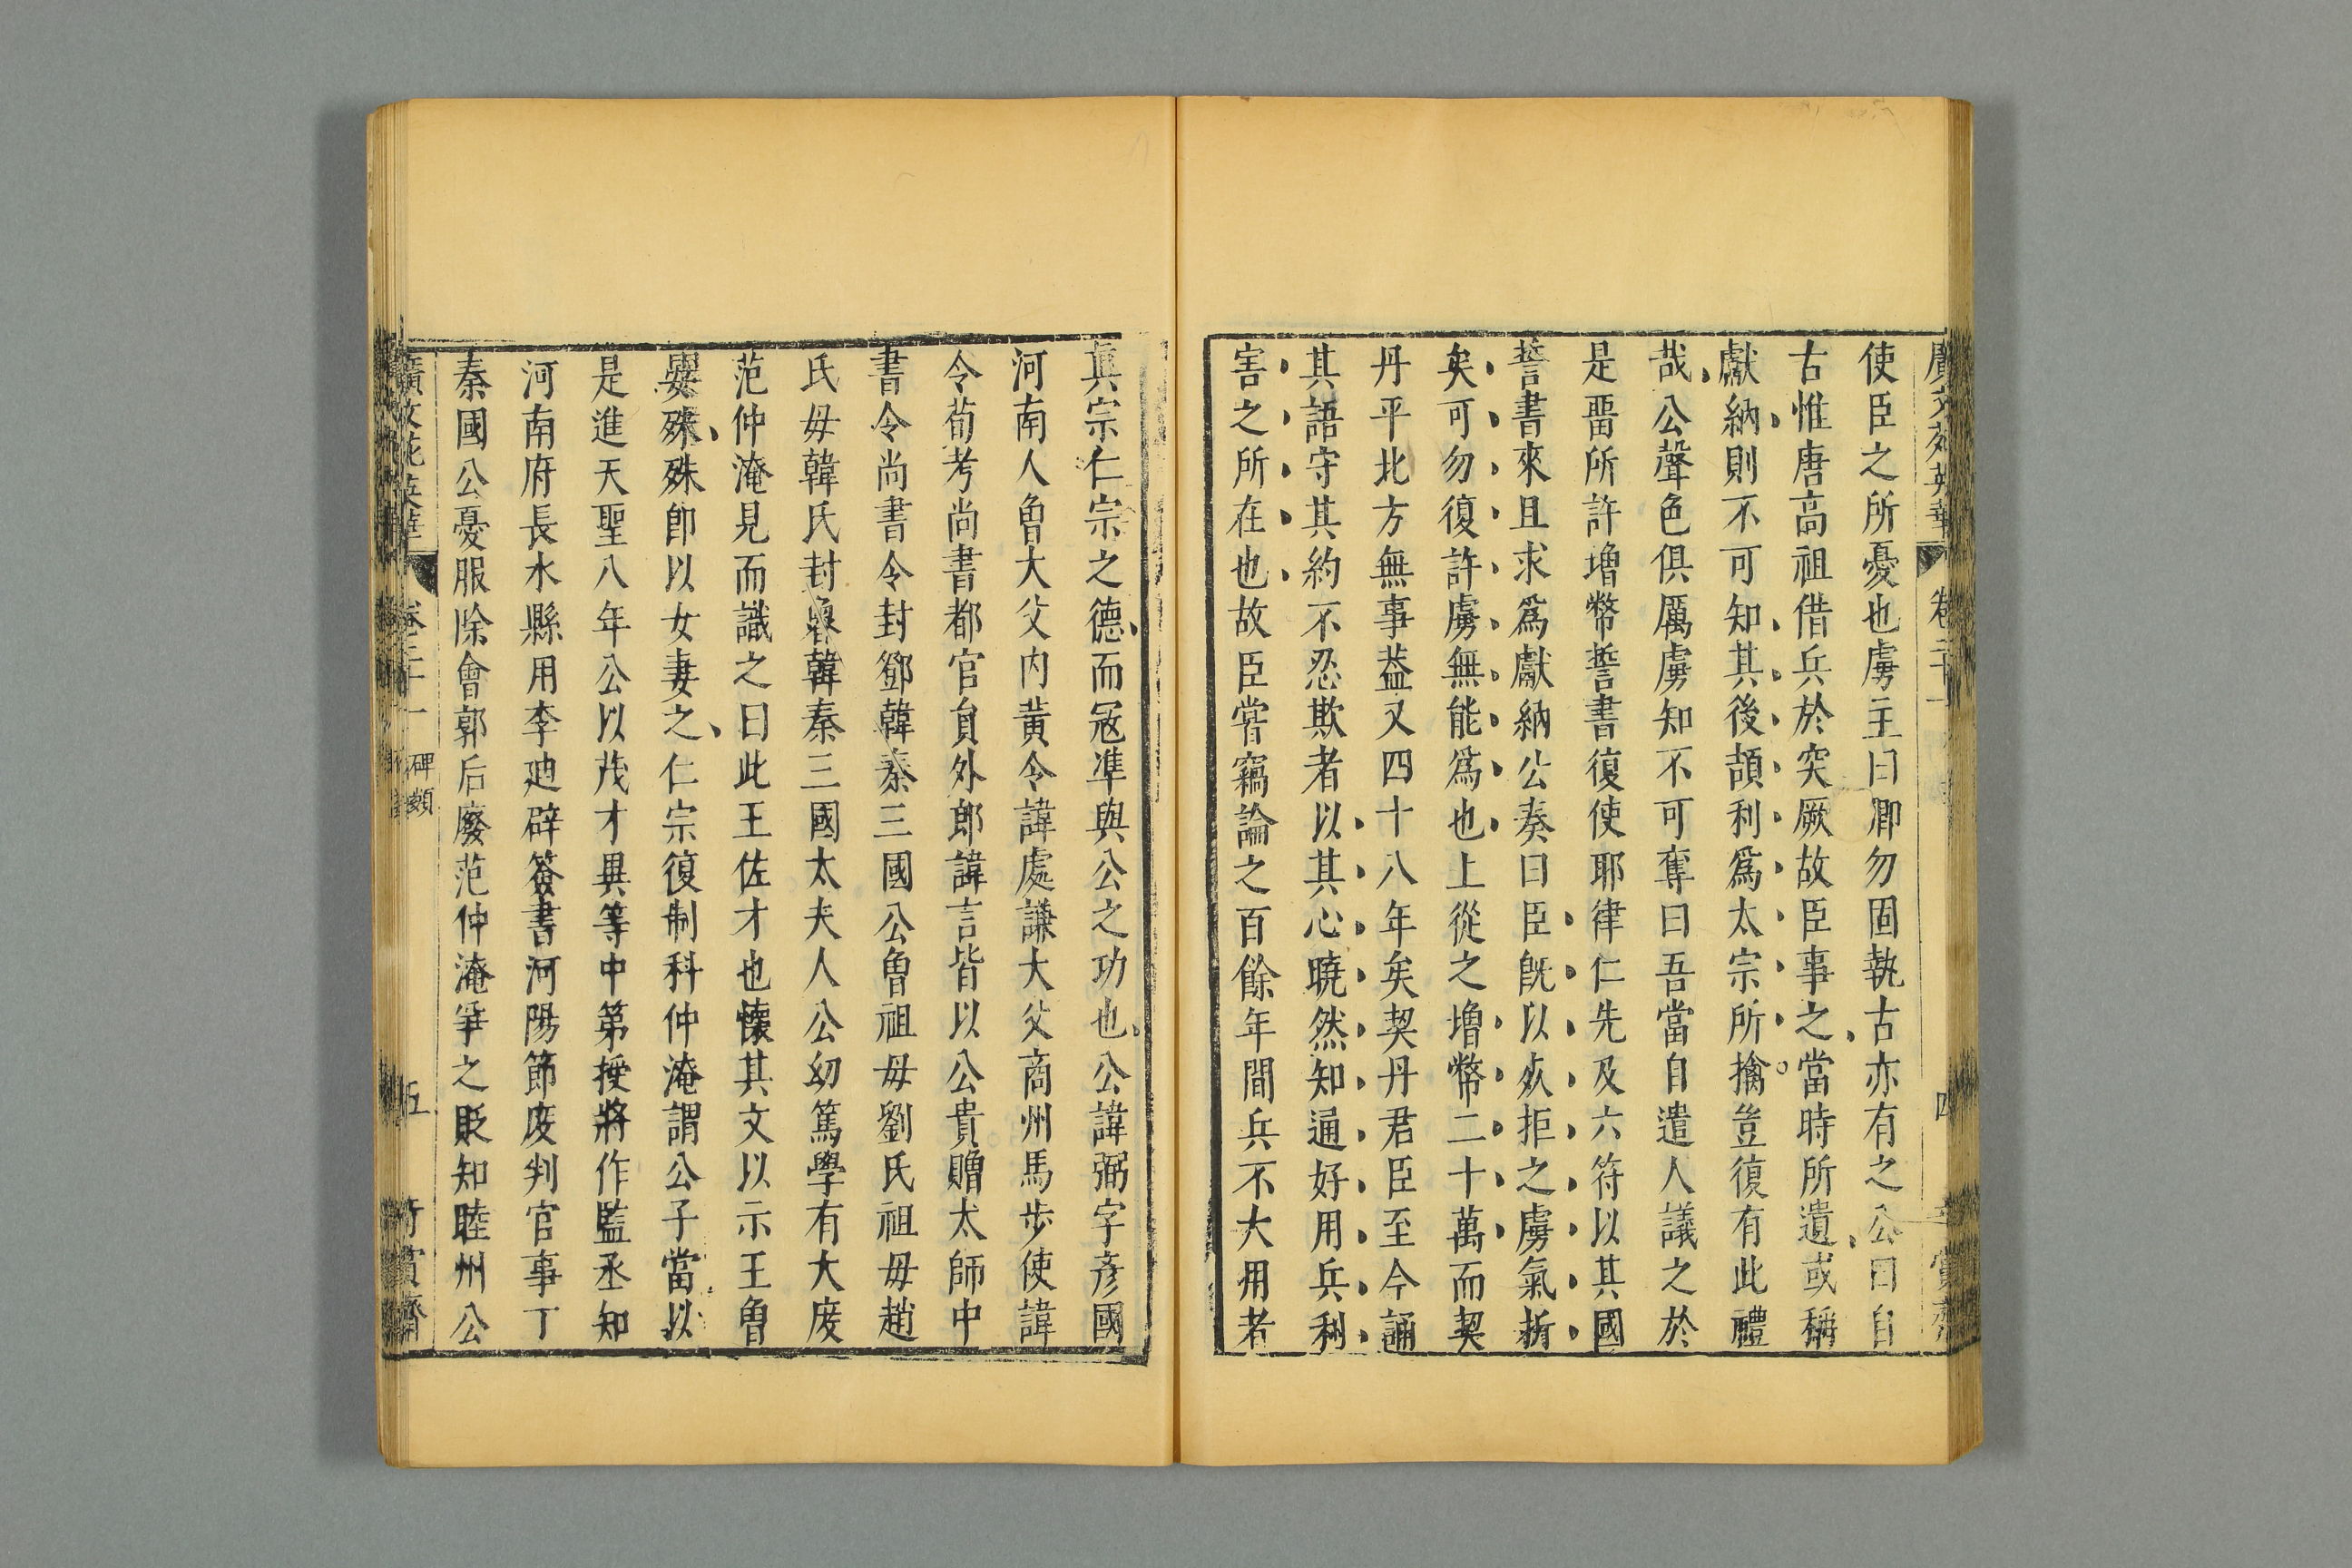 使臣之所憂也虜主曰卿勿固執古亦有之公曰自
古惟唐高祖借兵於突厥故臣事之當時所遺或稱
獻納則不可知其後頡利爲太宗所擒豈復有此禮
哉公聲色俱厲虜知不可奪曰吾當自遣人議之於
是畱所許增幣誓書復使耶律仁先及六符以其國
誓書來且求爲獻納公奏曰臣旣以死拒之虜氣折
矣可勿復許虜無能爲也上從之增幣二十萬而契
丹平北方無事葢又四十八年矣契丹君臣至今誦
其語守其約不忍欺者以其心曉然知通好用兵利
害之所在也故臣嘗竊論之百餘年間兵不大用者
眞宗仁宗之德而寇凖與公之功也公諱弼字彥國
河南人曾大父内黄令諱處謙大父商州馬步使諱
令荀考尚書都官員外郎諱言皆以公貴贈太師中
書令尚書令封鄧韓秦三國公曾祖母劉氏祖母趙
氏母韓氏封魯韓秦三國太夫人公幼篤學有大度
范仲淹見而識之曰此王佐才也懷其文以示王曾
晏殊殊卽以女妻之仁宗復制科仲淹謂公子當以
是進天聖八年公以茂才異等中第授將作監丞知
河南府長水縣用李廸辟簽書河陽節度判官事丁
秦國公憂服除會郭后廢范仲淹爭之貶知睦州公
廣文苑英華 卷二十一 碑類 五